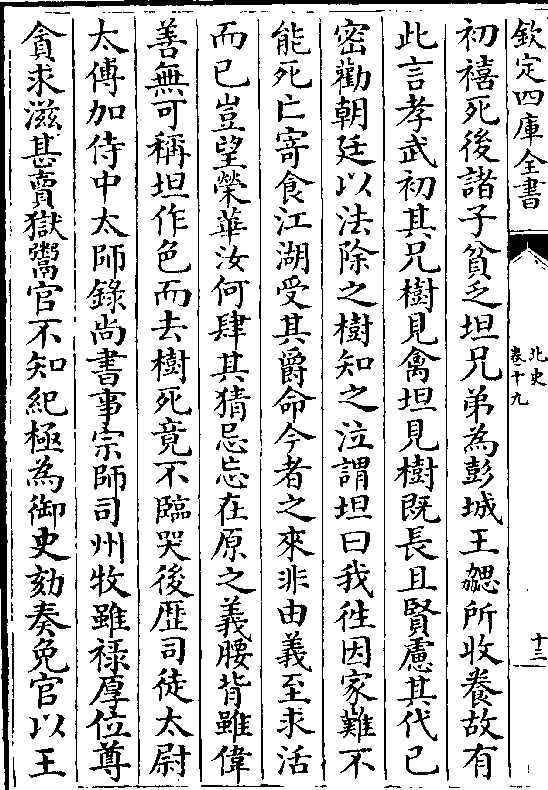 欽定四庫全書
北史
卷十九
十三
初禧死後諸子貧乏坦兄弟為彭城王勰所收養故有
此言孝武初其兄樹見禽坦見樹既長且賢慮其代已
密勸朝廷以法除之樹知之泣謂坦曰我徃因家難不
能死亡寄食江湖受其爵命今者之來非由義至求活
而已豈望榮華汝何肆其猜忌忘在原之義腰背雖偉
善無可稱坦作色而去樹死竟不臨哭後歴司徒太尉
太傅加侍中太師錄尚書事宗師司州牧雖禄厚位尊
貪求滋甚賣獄鬻官不知紀極為御史劾奏免官以王